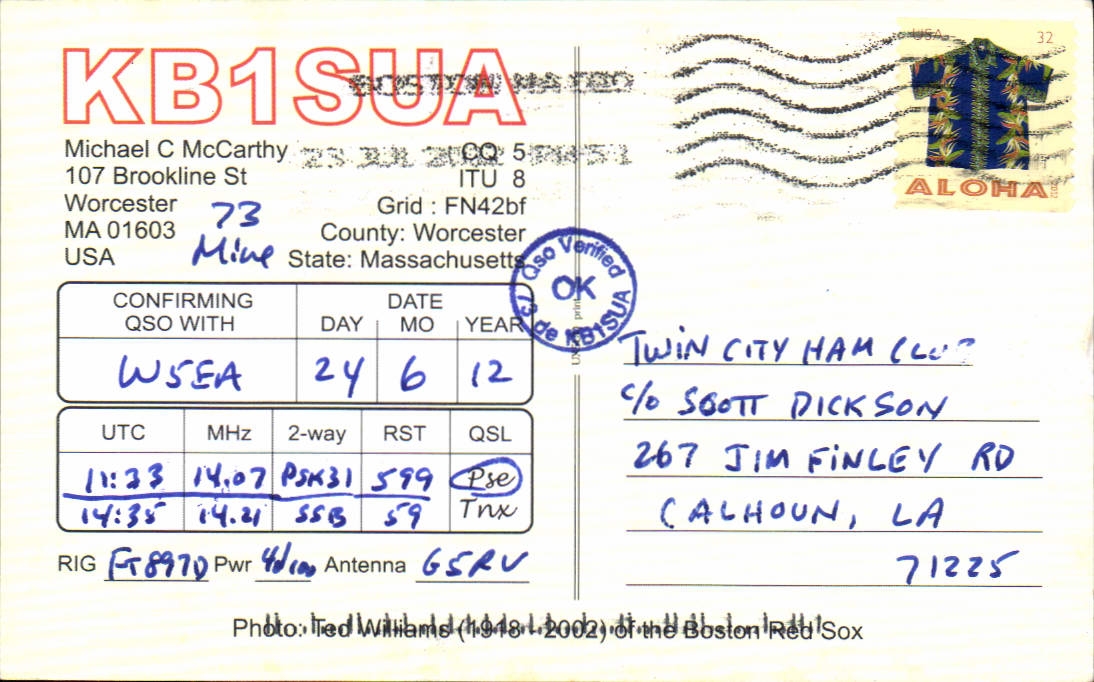 KB1SUA
BOSTON MA 020
Michael C McCarthy
107 Brookline St
Worcester
MA 01603
USA
73
Mike
CQ 5
ITU 8
Grid : FN42bf
County: Worcester
State: Massachusetts
CONFIRMING QSO WITH
DATE
DAY MO YEAR
W5EA 24 6 12
UTC MHz 2-way RST QSL
11:33 14.07 PSK31 599 Pse
14:35 14.21 SSB 59 Tnx
RIG FT897D Pwr Antenna G5RV
Photo: Ted Williams (1918 - 2002) of the Boston Red Sox
Qso Verified
OK
73 de KB1SUA
USA 32
ALOHA
2012
TWIN CITY HAM CLUB
c/o SCOTT DICKSON
267 JIM FINLEY RD
CALHOUN, LA
71225